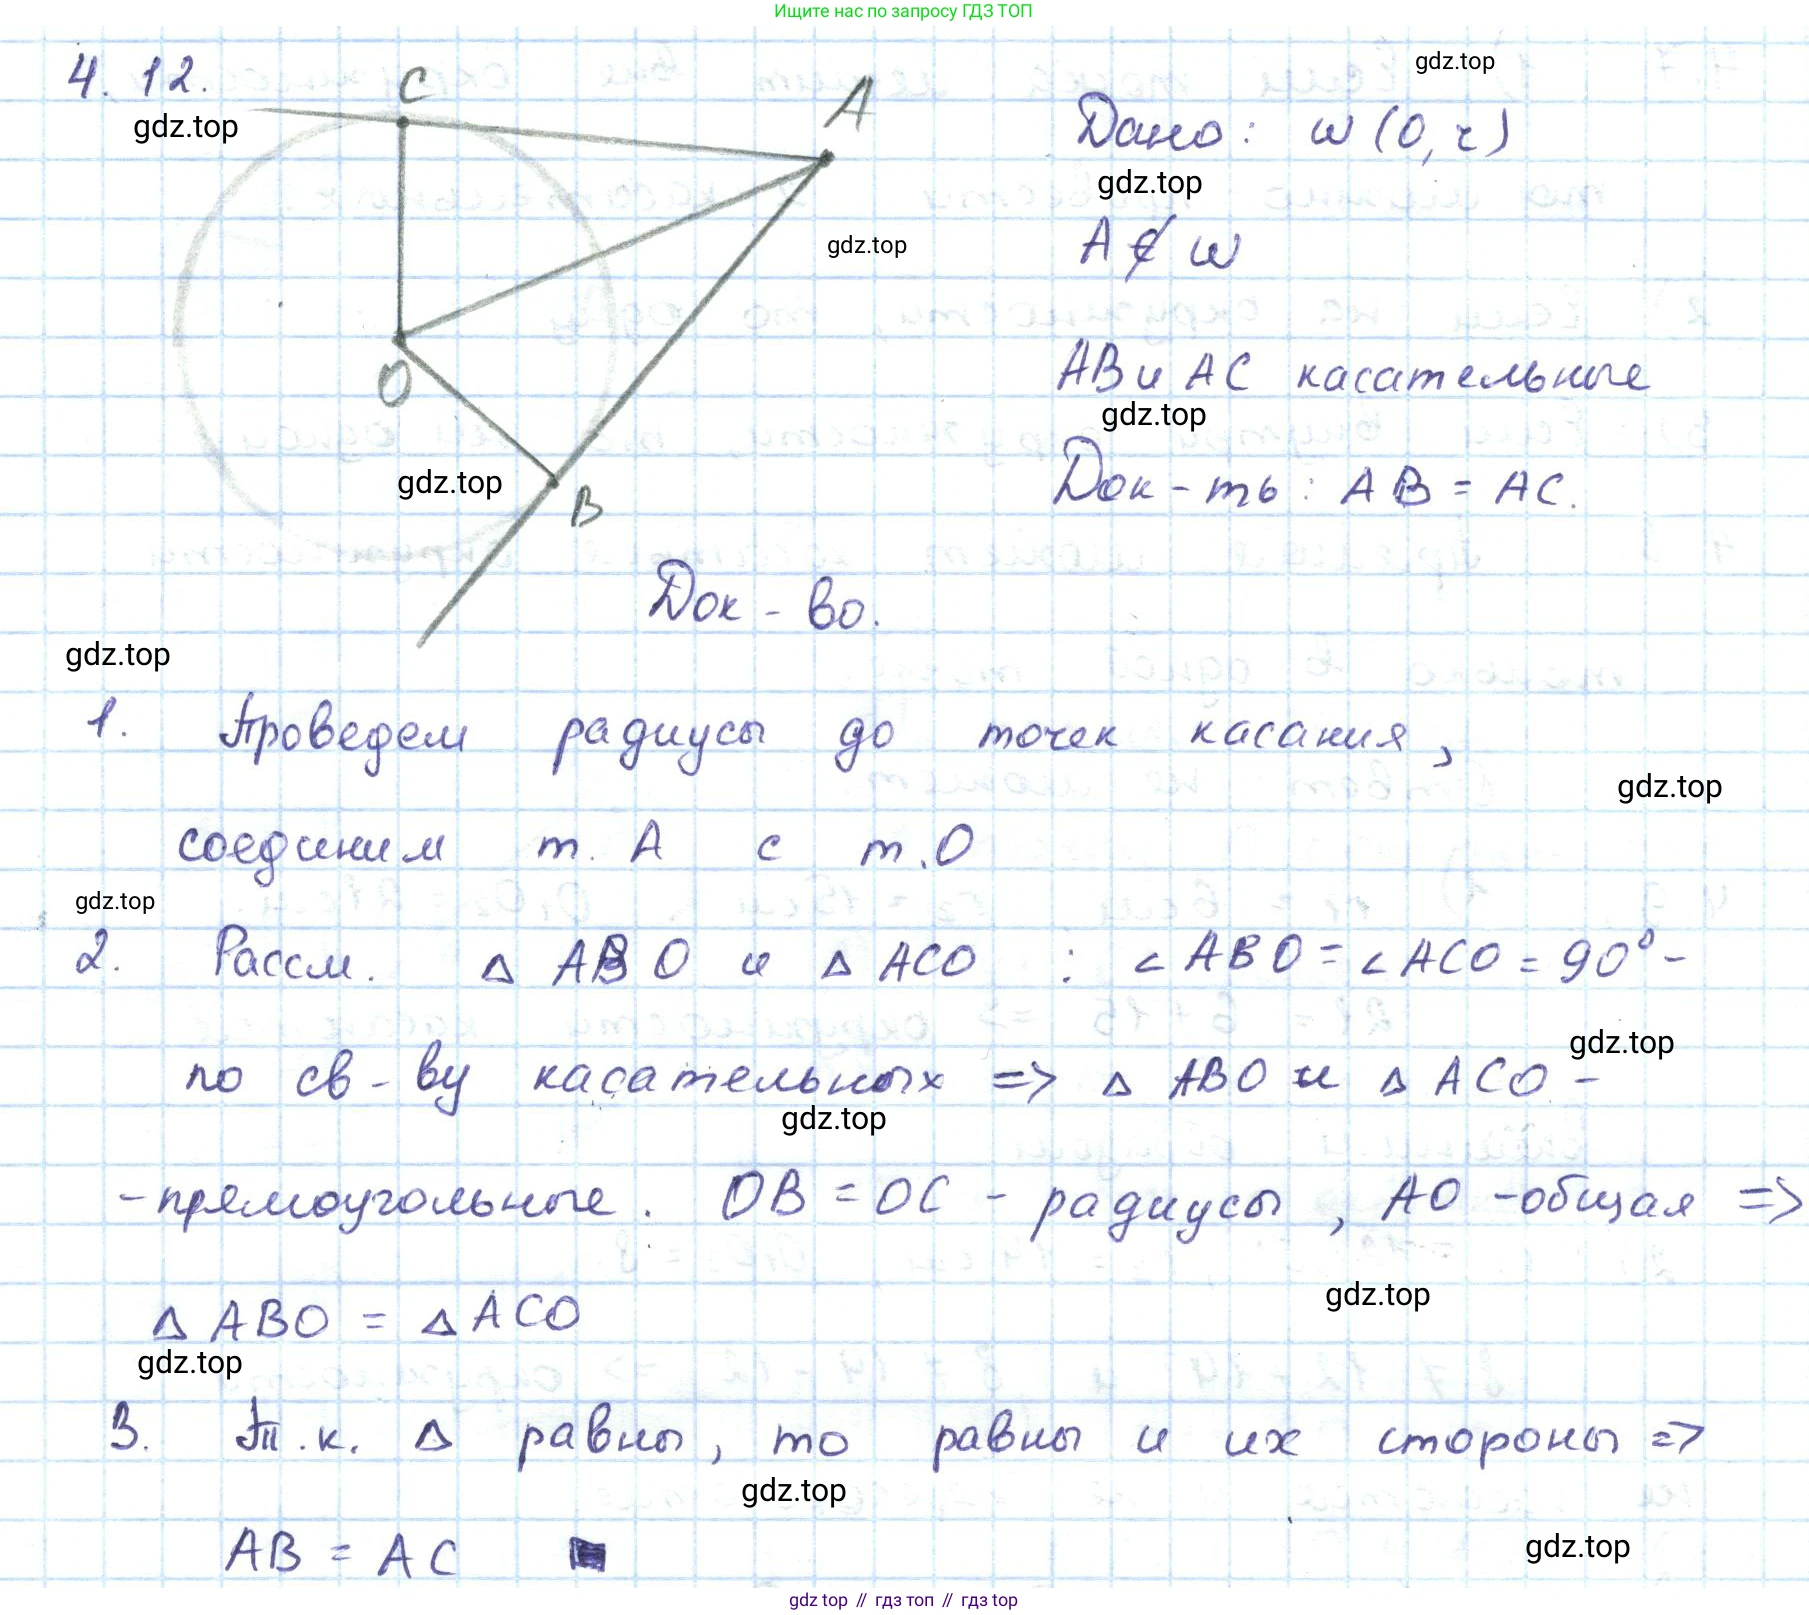 Ищите нас по запросу ГДЗ ТОП
4.12.
C
A
O
B
gdz.top
gdz.top
Дано: ω(O, r)
gdz.top
A ∉ ω
gdz.top
AB и AC касательные
gdz.top
Док-ть: AB = AC.
gdz.top
Док-во.
gdz.top
1. Проведем радиусы до точек касания,
gdz.top
соединим т. A с т. O
gdz.top
2. Рассм. △ ABO и △ ACO : ∠ABO = ∠ACO = 90° -
gdz.top
по св-ву касательных => △ ABO и △ ACO -
gdz.top
- прямоугольные. OB = OC - радиусы, AO - общая =>
gdz.top
△ ABO = △ ACO
gdz.top
3. Т.к. △ равны, то равны и их стороны =>
gdz.top
AB = AC
gdz.top
gdz top // гдз топ // гдз top